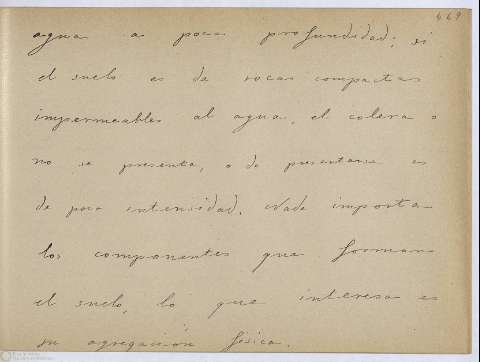 469
agua a poca profundidad; si
el suelo es de rocas compactas
impermeables al agua, el colera o
no se presenta, o de presentarse es
de poca intensidad. Nada importa
los componentes que forman
el suelo, lo que interesa es
su agregación física.